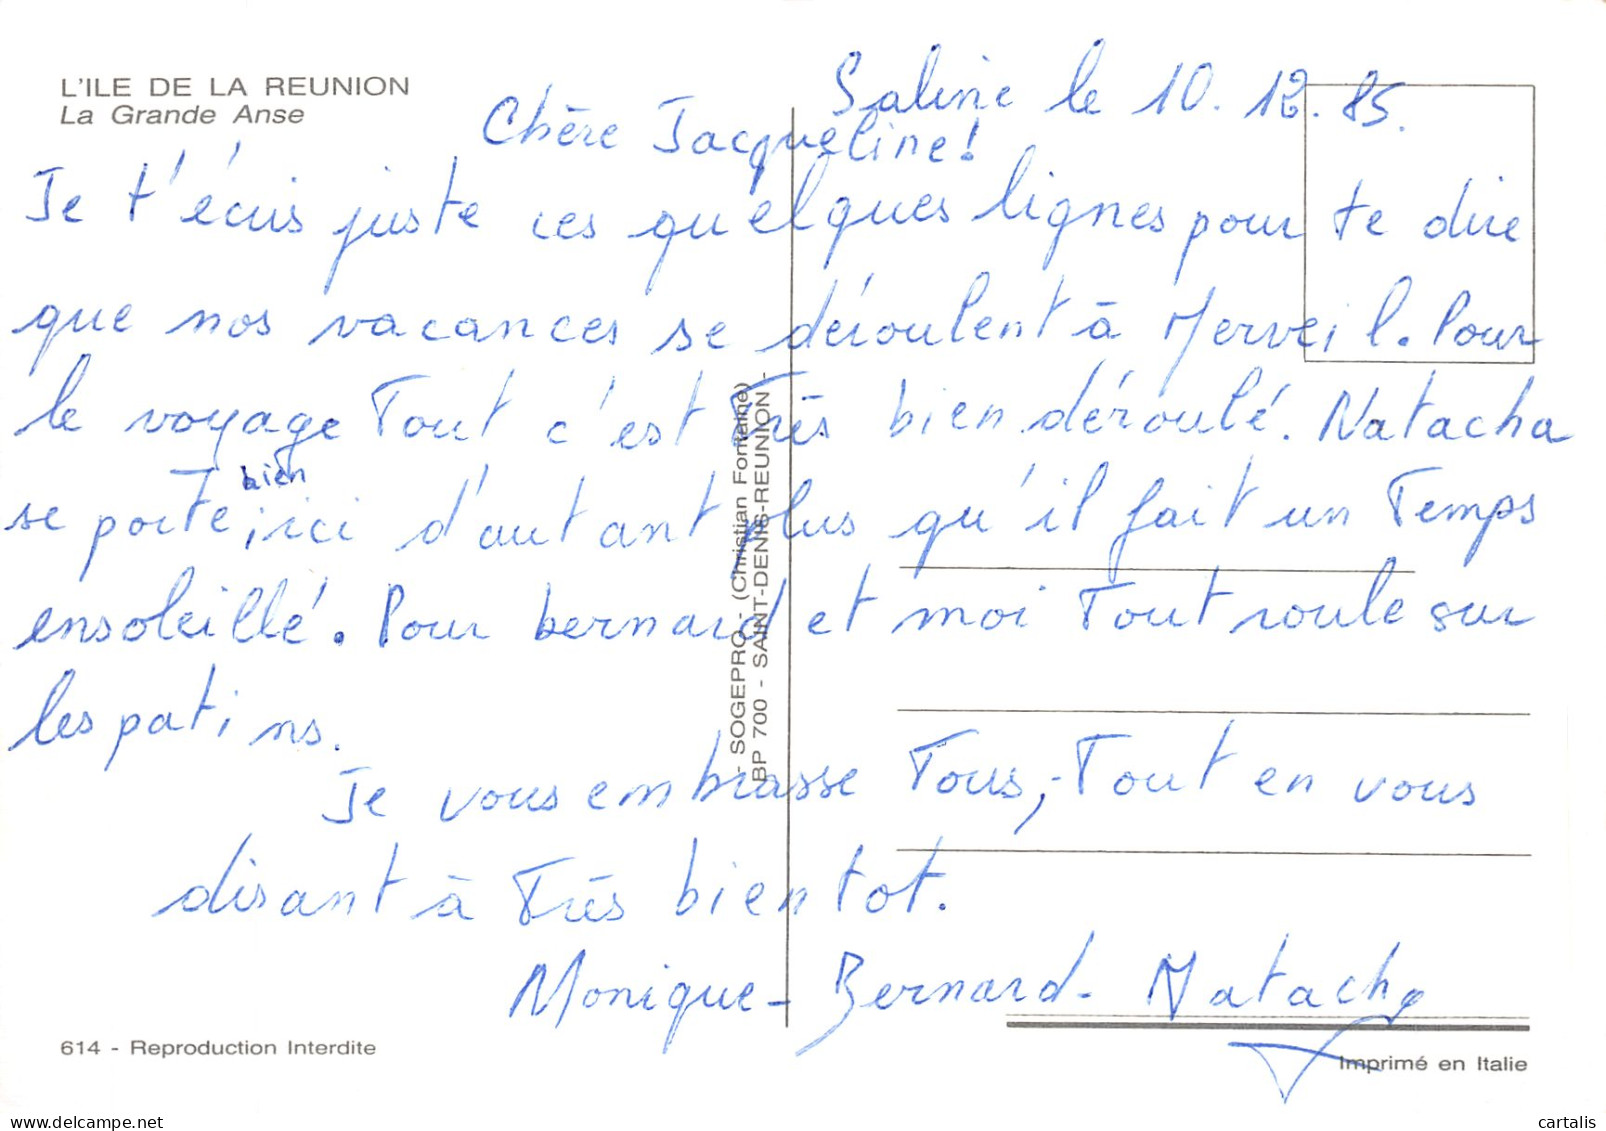 L'ILE DE LA REUNION
La Grande Anse
Saline le 10.12.85.
Chère Jacqueline!
Je t'écris juste ces quelques lignes pour te dire
que nos vacances se déroulent à Merveil. Pour
le voyage Tout c'est Très bien déroulé. Natacha
bien
se porte, ici d'autant plus qu'il fait un Temps
ensoleillé. Pour bernard et moi Tout roule sur
les patins.
Je vous embrasse Tous, Tout en vous
disant à Très bientot.
Monique - Bernard - Natacha
- SOGEPRO - (Christian Fontaine) -
BP 700 - SAINT-DENIS-REUNION -
614 - Reproduction Interdite
Imprimé en Italie
delcampe.net
cartalis